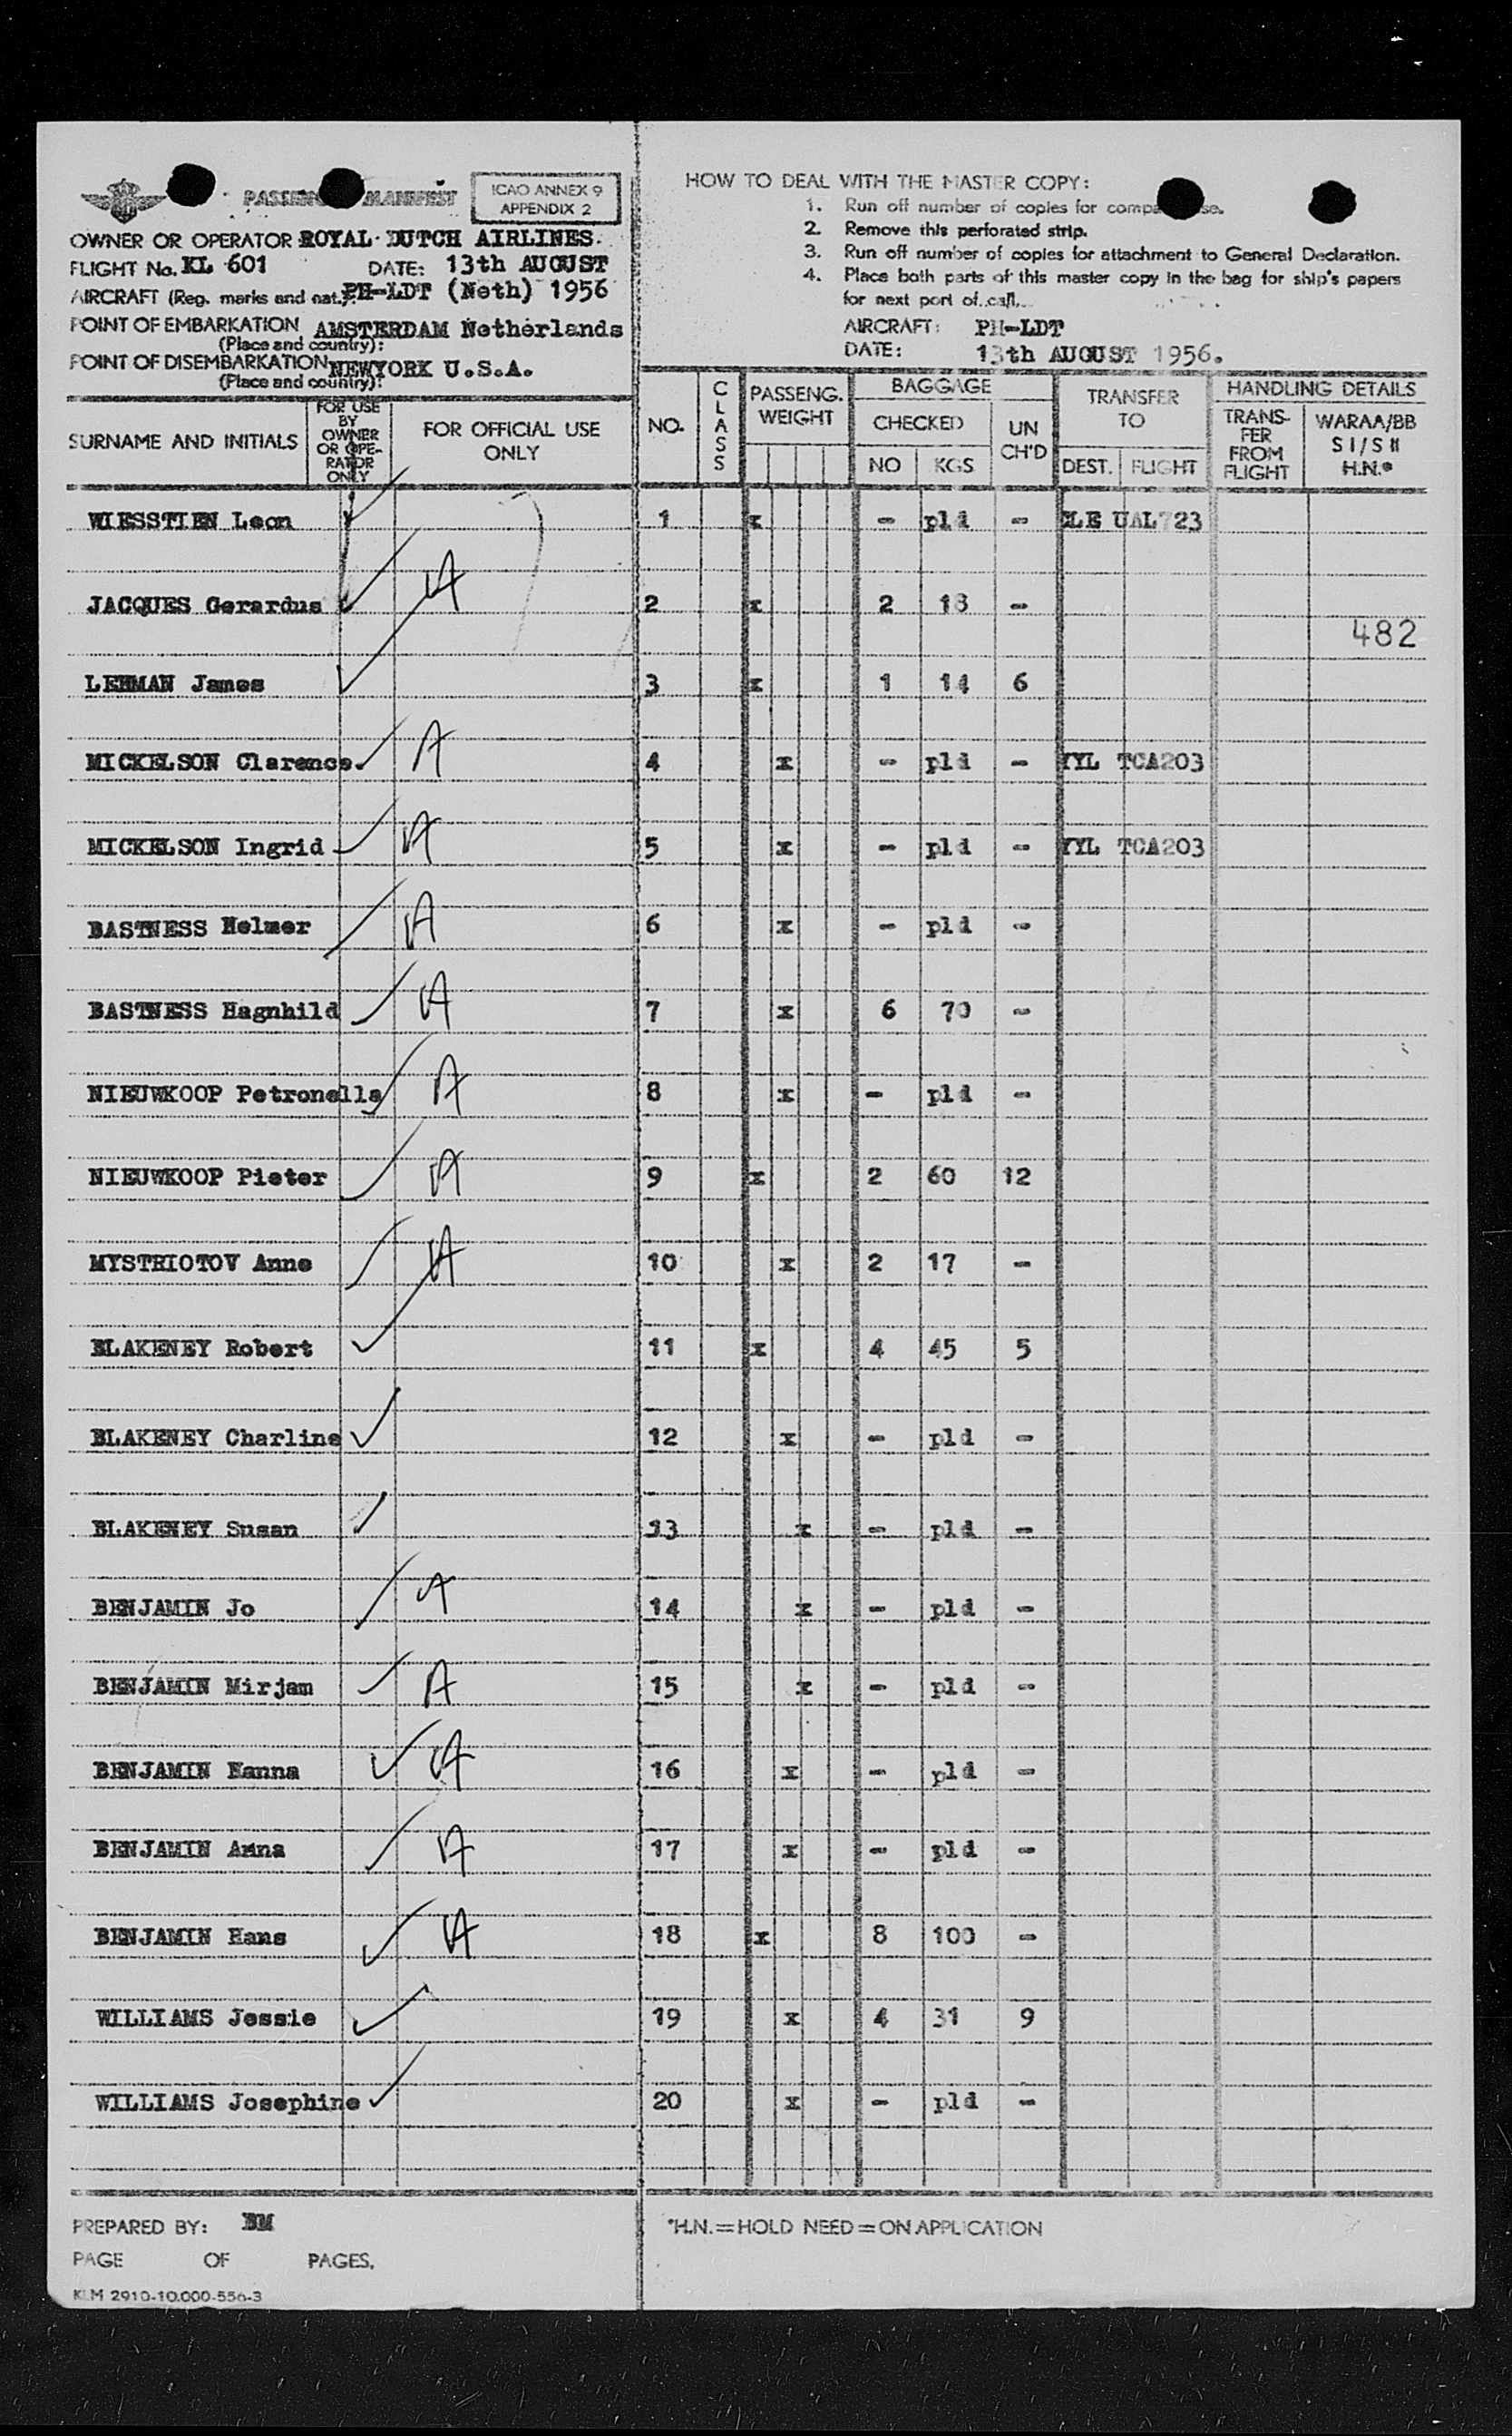 PASSENGER MANIFEST
ICAO ANNEX 9
APPENDIX 2
OWNER OR OPERATOR ROYAL DUTCH AIRLINES.
FLIGHT No. KL 601 DATE: 13th AUGUST
AIRCRAFT (Reg. marks and nat.): PH-LDT (Neth) 1956
POINT OF EMBARKATION AMSTERDAM Netherlands
(Place and country):
POINT OF DISEMBARKATION NEWYORK U.S.A.
(Place and country):
HOW TO DEAL WITH THE MASTER COPY:
1. Run off number of copies for
2. Remove this perforated strip.
3. Run off number of copies for attachment to General Declaration.
4. Place both parts of this master copy in the bag for ship's papers
for next port of call.
AIRCRAFT: PH-LDT
DATE: 13th AUGUST 1956.
SURNAME AND INITIALS
FOR USE BY OWNER OR OPE-RATOR ONLY
FOR OFFICIAL USE ONLY
NO. CLASS PASSENG. WEIGHT BAGGAGE CHECKED NO KGS UN CH'D TRANSFER TO DEST. FLIGHT HANDLING DETAILS TRANS-FER FROM FLIGHT WARAA/BB SI/SH H.N.*
WIESSTIEN Leon 1 x - pld - CLE UAL723
JACQUES Gerardus A 2 x 2 18 -
482
LEHMAN James 3 x 1 14 6
MICKELSON Clarence. A 4 x - pld - YYL TCA203
MICKELSON Ingrid A 5 x - pld - YYL TCA203
BASTNESS Helmer A 6 x - pld -
BASTNESS Hagnhild A 7 x 6 70 -
NIEUWKOOP Petronella A 8 x - pld -
NIEUWKOOP Pieter A 9 x 2 60 12
MYSTRIOTOV Anne A 10 x 2 17 -
BLAKENEY Robert 11 x 4 45 5
BLAKENEY Charline 12 x - pld -
BLAKENEY Susan 13 x - pld -
BENJAMIN Jo A 14 x - pld -
BENJAMIN Mirjam A 15 x - pld -
BENJAMIN Hanna A 16 x - pld -
BENJAMIN Anna A 17 x - pld -
BENJAMIN Hans A 18 x 8 100 -
WILLIAMS Jessie 19 x 4 31 9
WILLIAMS Josephine 20 x - pld -
PREPARED BY: BM
*H.N.=HOLD NEED=ON APPLICATION
PAGE OF PAGES.
KLM 2910-10.000-556-3